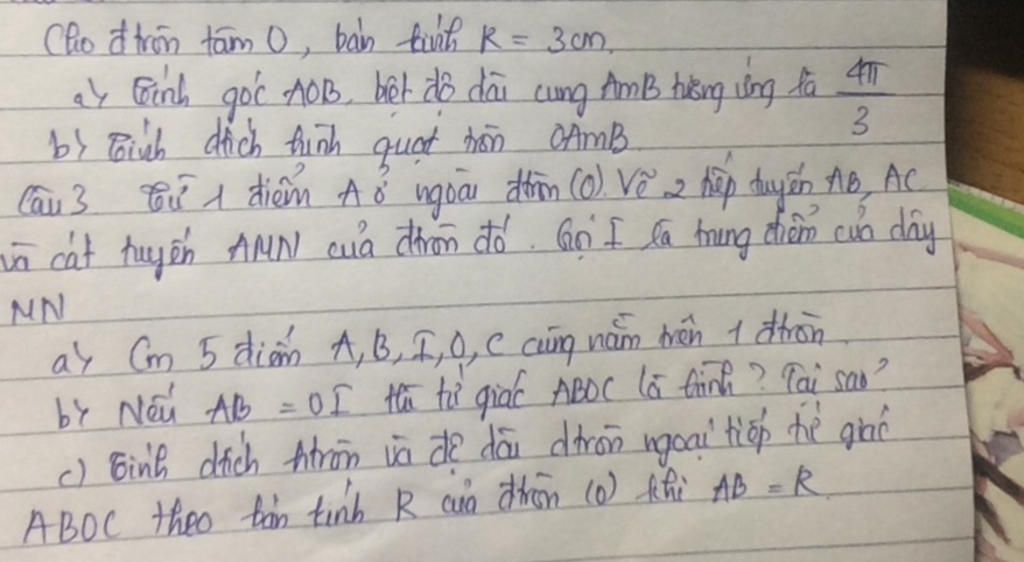 Cho đtròn tâm O, bán kính R = 3cm.
a) Tính góc AOB, biết độ dài cung AmB tương ứng là 4π/3
b) Tính dtích hình quạt tròn OAmB
Câu 3 Từ 1 điểm A ở ngoài đtròn (O). Vẽ 2 tiếp tuyến AB, AC
và cát tuyến AMN của đtròn đó. Gọi I là trung điểm của dây
MN
a) Cm 5 điểm A, B, I, O, C cùng nằm trên 1 đtròn.
b) Nếu AB = OI thì tứ giác ABOC là hình? Tại sao?
c) Tính dtích htròn và độ dài dtròn ngoại tiếp tứ giác
ABOC theo bán kính R của đtròn (O) khi AB = R.